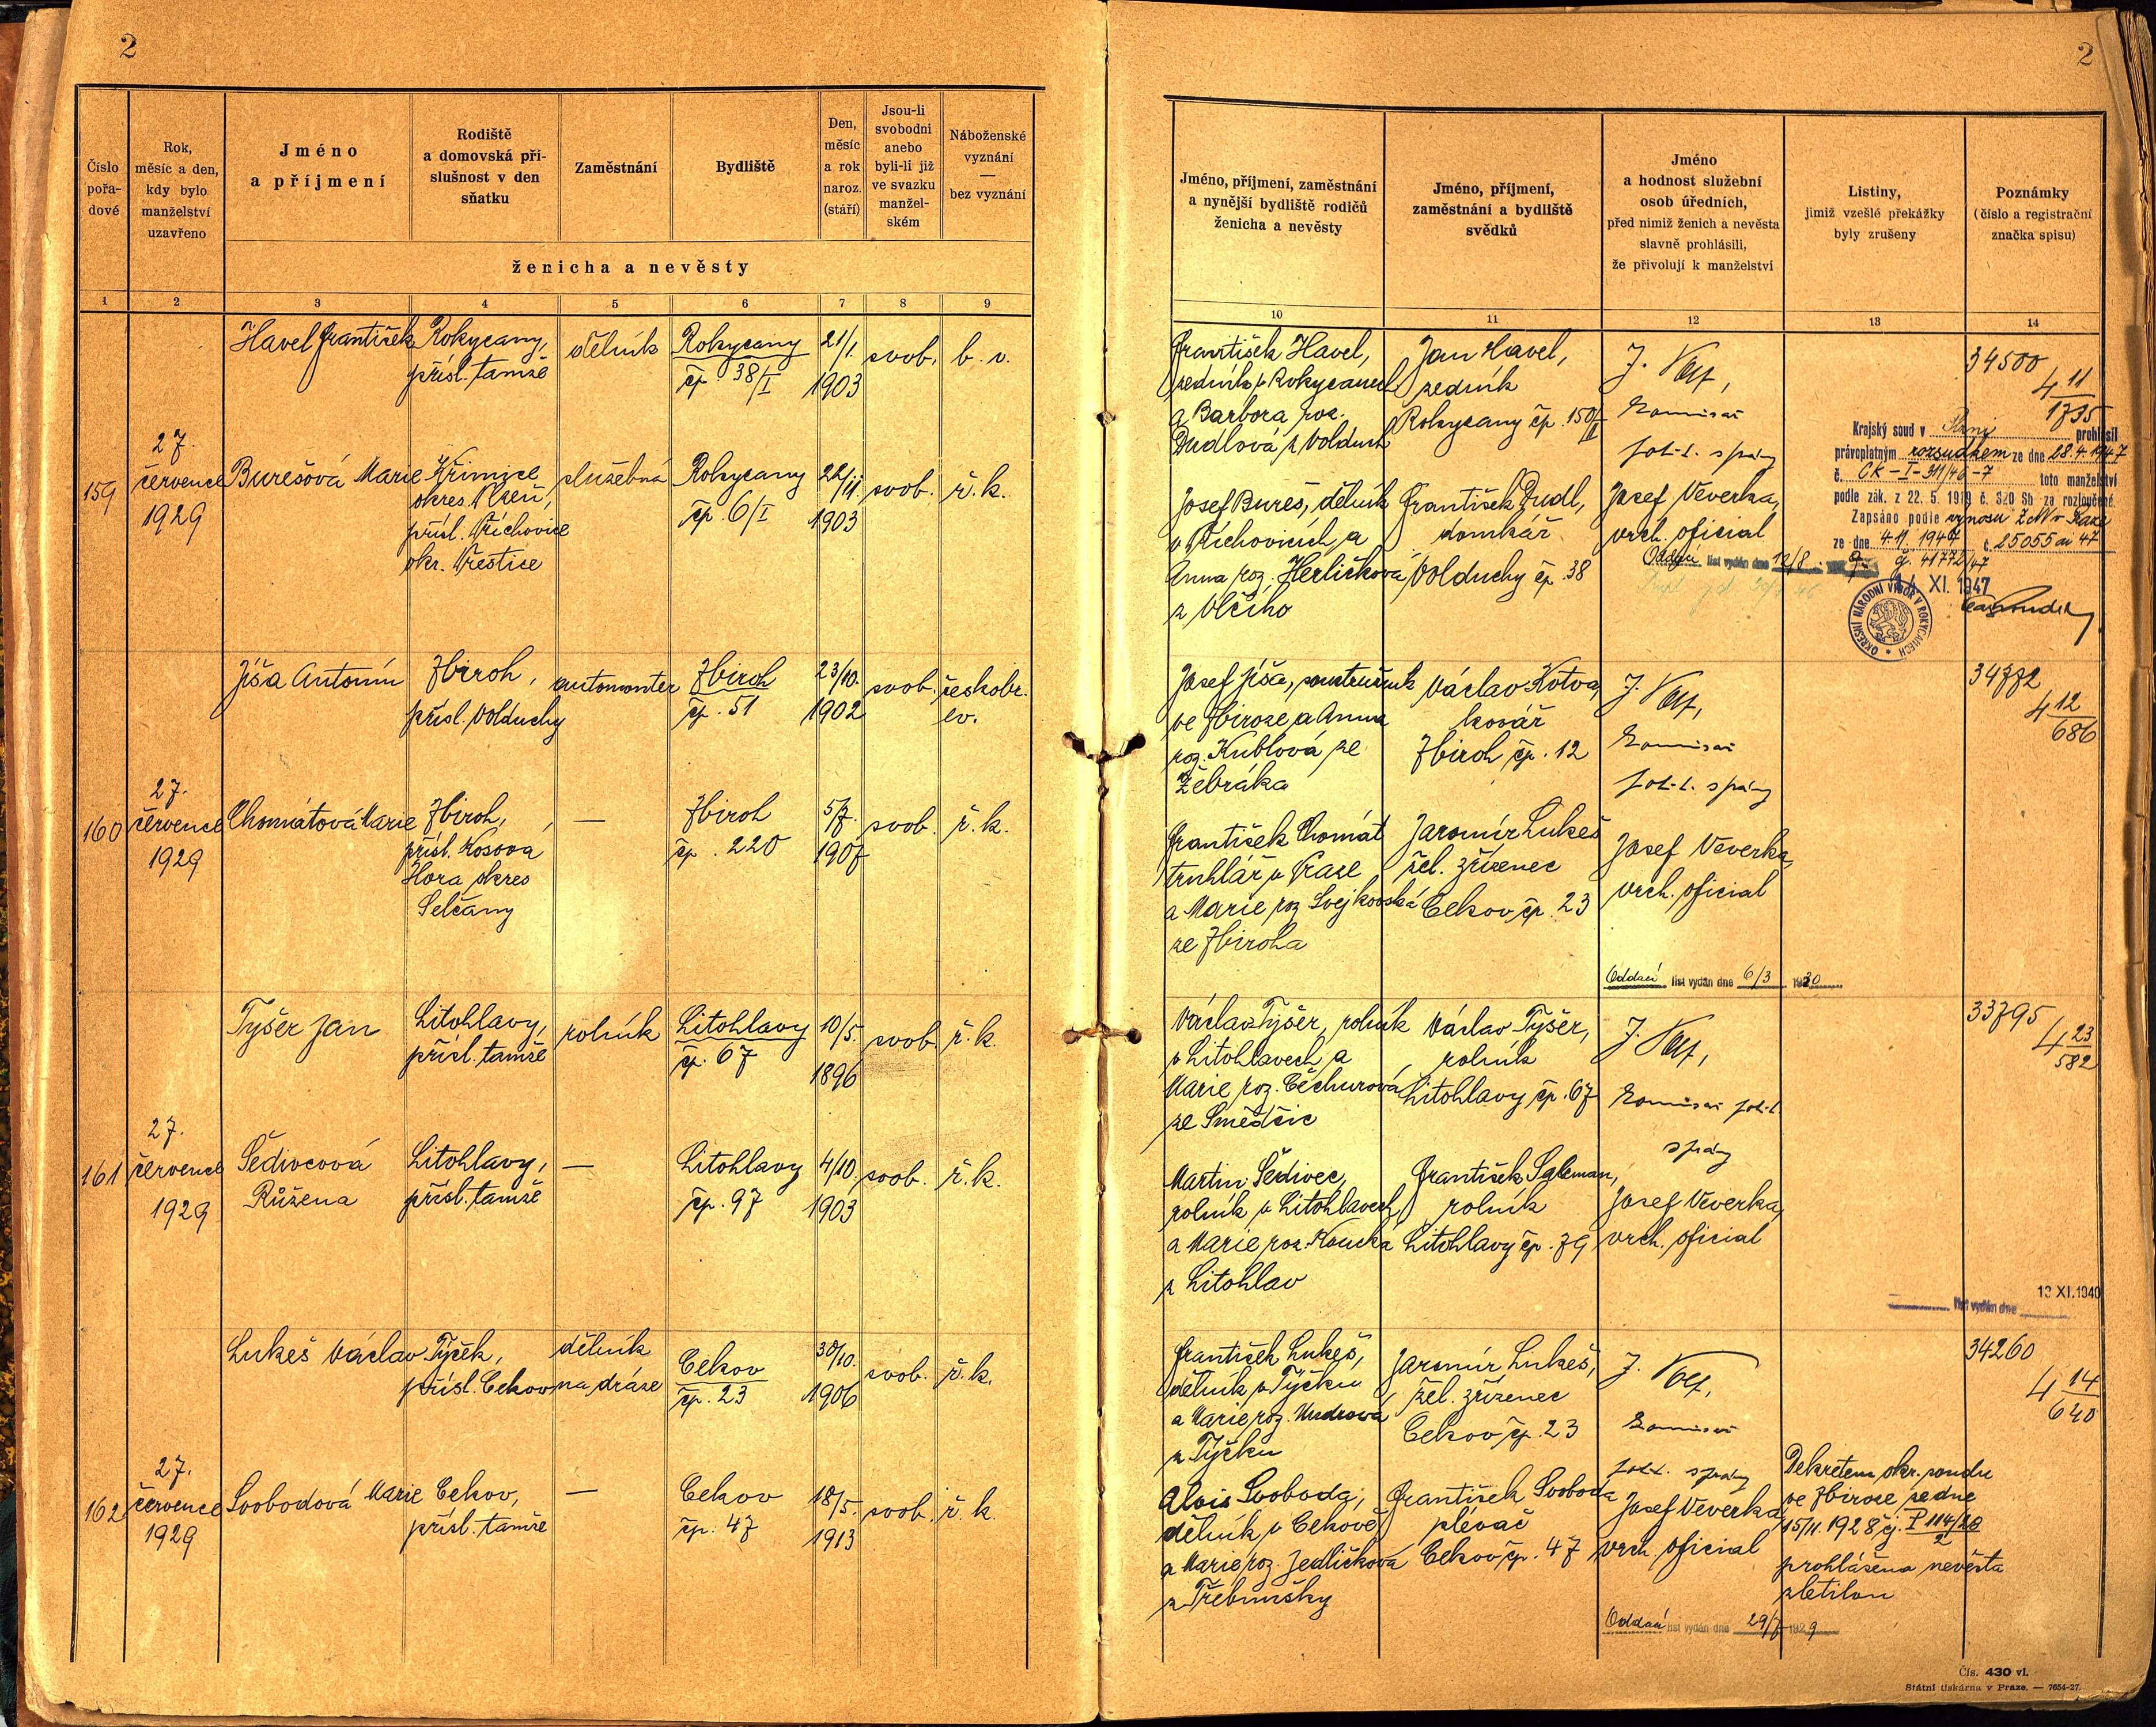 2
2
Číslo pořa-dové
Rok, měsíc a den, kdy bylo manželství uzavřeno
Jméno a příjmení
Rodiště a domovská pří-slušnost v den sňatku
Zaměstnání
Bydliště
Den, měsíc a rok naroz. (stáří)
Jsou-li svobodni anebo byli-li již ve svazku manžel-ském
Náboženské vyznání — bez vyznání
ženicha a nevěsty
1 2 3 4 5 6 7 8 9
Jméno, příjmení, zaměstnání a nynější bydliště rodičů ženicha a nevěsty
Jméno, příjmení, zaměstnání a bydliště svědků
Jméno a hodnost služební osob úředních, před nimiž ženich a nevěsta slavně prohlásili, že přivolují k manželství
Listiny, jimiž vzešlé překážky byly zrušeny
Poznámky (číslo a registrační značka spisu)
10 11 12 13 14
159
27.
července
1929
Havel František
Rokycany,
přísl. tamže
dělník
Rokycany
čp. 38/I
21/1.
1903
svob.
b. v.
Burešová Marie
Křimice
okres Plzeň,
přísl. Příchovice
okr. Přestice
služebná
Rokycany
čp. 6/I
1903
svob.
ř. k.
František Havel,
zedník v Rokycanech
a Barbora roz.
Dudlová z Volduch
Josef Bureš, dělník
v Příchovicích a
Anna roz. Herličková
z Vlčího
Jan Havel,
zedník
Rokycany čp. 150/II
František Dudl,
domkář
Volduchy čp. 38
komisař
pol. správy
Josef Veverka,
vrch. oficial
Oddací list vydán dne 12/8
34500
4 11
1735
Krajský soud v Plzni prohlásil
právoplatným rozsudkem ze dne 28.4.1947
č. CK-I-311/46-7 toto manželství
podle zák. z 22. 5. 1919 č. 320 Sb. za rozloučené.
Zapsáno podle výnosu ZNV v Praze
ze dne 4.11.1947 č. 25055 ai 47
č. 41772/47
14 XI. 1947
OKRESNÍ NÁRODNÍ VÝBOR V ROKYCANECH
160
27.
července
1929
Jíša Antonín
Zbiroh,
přísl. Volduchy
automonter
Zbiroh
čp. 51
23/10.
1902
svob.
českobr.
ev.
Chomátová Marie
Zbiroh,
přísl. Kosova
Hora okres
Selčany
—
Zbiroh
čp. 220
5/7.
1907
svob.
ř. k.
Josef Jíša, soustružník
ve Zbiroze a Anna
roz. Kublová ze
Žebráka
František Chomát
truhlář v Praze
a Marie roz. Svejkovská
ze Zbiroha
Václav Kotva,
kovář
Zbiroh čp. 12
Jaromír Lukeš
žel. zřízenec
Cekov čp. 23
komisař
pol. správy
Josef Veverka,
vrch. oficial
Oddací list vydán dne 6/3 1930
34772
4 12
686
161
27.
července
1929
Tyšer Jan
Litohlavy,
přísl. tamže
rolník
Litohlavy
čp. 67
10/5.
1896
svob.
ř. k.
Šedivcová
Růžena
Litohlavy,
přísl. tamže
—
Litohlavy
čp. 97
4/10.
1903
svob.
ř. k.
Václav Tyšer, rolník
v Litohlavech a
Marie roz. Čechurová
ze Smědčic
Martin Šedivec,
rolník v Litohlavech
a Marie roz. Koucká
z Litohlav
Václav Tyšer,
rolník
Litohlavy čp. 67
František Saleman,
rolník
Litohlavy čp. 79
komisař pol.
správy
Josef Veverka,
vrch. oficial
33795
4 23
582
list vydán dne
13 XI. 1940
162
27.
července
1929
Lukeš Václav
Týček,
přísl. Cekov
dělník
na dráze
Cekov
čp. 23
30/10.
1906
svob.
ř. k.
Svobodová Marie
Cekov,
přísl. tamže
—
Cekov
čp. 47
18/5.
1913
svob.
ř. k.
František Lukeš,
dělník v Týčku
a Marie roz. Mudrová
z Týčku
Alois Svoboda,
dělník v Cekově
a Marie roz. Jedličková
z Třebnušky
Jaromír Lukeš,
žel. zřízenec
Cekov čp. 23
František Svoboda
plévač
Cekov čp. 47
komisař
pol. správy
Josef Veverka,
vrch. oficial
Oddací list vydán dne 29/7 1929
Dekretem okr. soudu
ve Zbiroze ze dne
15/11. 1928 čj. P 114/28
2
prohlášena nevěsta
zletilou
34260
4 14
640
Čís. 430 vl.
Státní tiskárna v Praze. — 7654-27.